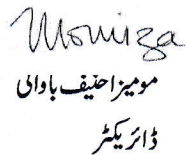 Momiza
مومیزا حنیف باوالی
ڈائریکٹر